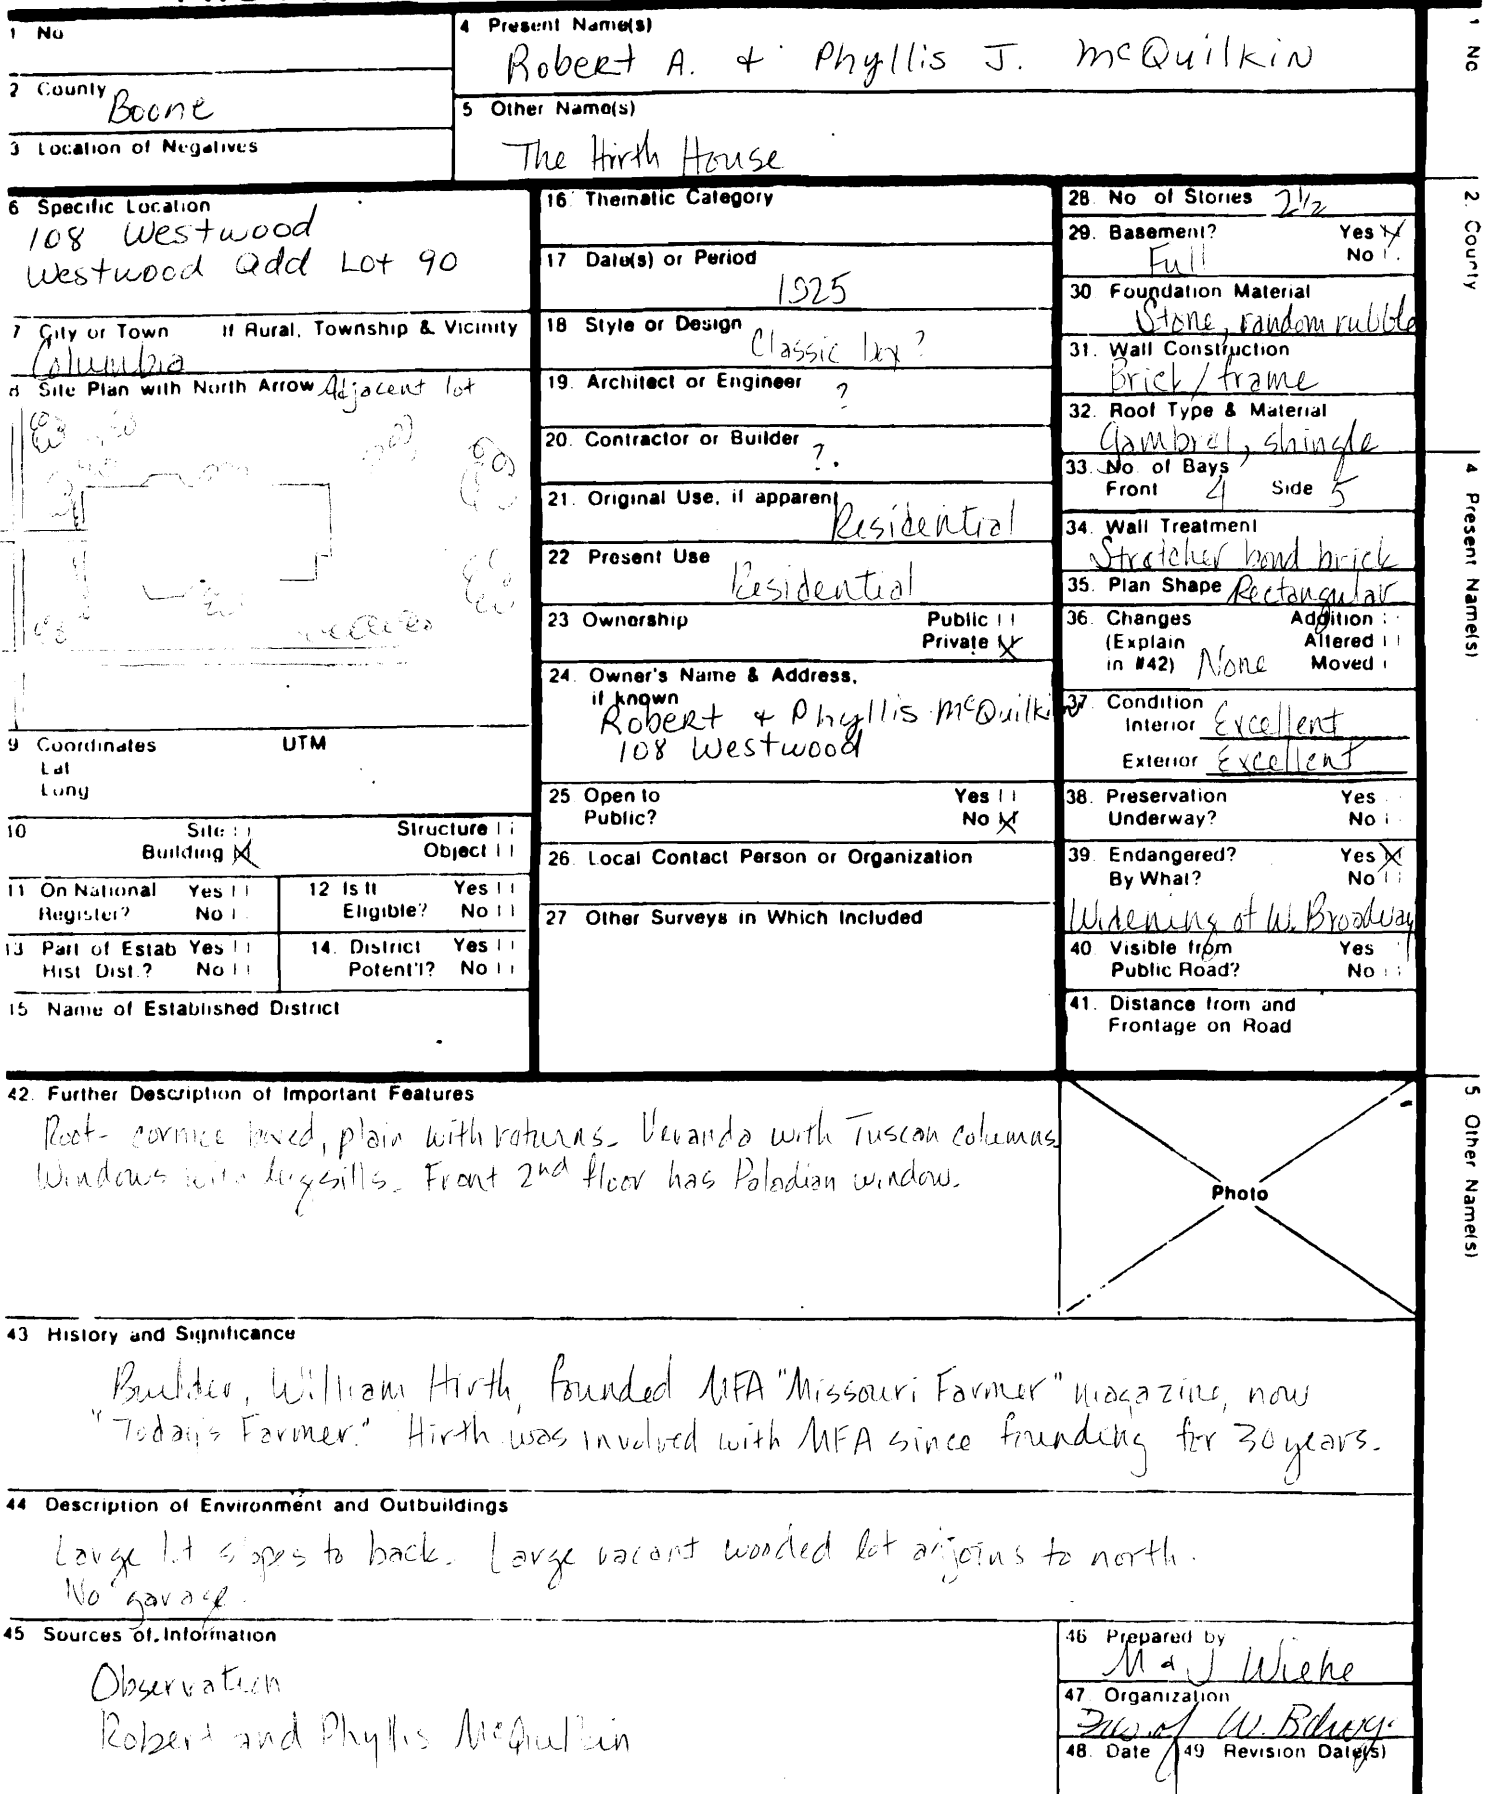 1 No
4 Present Name(s)
Robert A. & Phyllis J. McQuilkin
2 County
Boone
5 Other Name(s)
The Hirth House
3 Location of Negatives
6 Specific Location
108 Westwood
Westwood Add Lot 90
7 City or Town If Rural, Township & Vicinity
Columbia
8 Site Plan with North Arrow Adjacent lot
9 Coordinates UTM
Lat
Long
10 Site Structure
Building X Object
11 On National Register? Yes No
12 Is It Eligible? Yes No
13 Part of Estab Hist Dist.? Yes No
14. District Potent'l? Yes No
15 Name of Established District
16 Thematic Category
17 Date(s) or Period
1925
18 Style or Design
Classic box?
19. Architect or Engineer
?
20. Contractor or Builder
?.
21. Original Use, if apparent
Residential
22 Present Use
Residential
23 Ownership Public
Private X
24. Owner's Name & Address,
if known
Robert & Phyllis McQuilkin
108 Westwood
25 Open to Yes
Public? No X
26. Local Contact Person or Organization
27 Other Surveys in Which Included
28. No of Stories 2 1/2
29. Basement? Yes X
Full No
30 Foundation Material
Stone, random rubble
31. Wall Construction
Brick / frame
32. Roof Type & Material
Gambrel, shingle
33. No. of Bays
Front 4 Side 5
34. Wall Treatment
Stretcher bond brick
35. Plan Shape Rectangular
36. Changes Addition
(Explain Altered
in #42) None Moved
37. Condition
Interior Excellent
Exterior Excellent
38. Preservation Yes
Underway? No
39. Endangered? Yes X
By What? No
Widening of W. Broadway
40. Visible from Yes
Public Road? No
41. Distance from and
Frontage on Road
42. Further Description of Important Features
Roof- cornice boxed, plain with returns. Veranda with Tuscan columns.
Windows with lugsills. Front 2nd floor has Paladian window.
Photo
43 History and Significance
Builder, William Hirth, founded MFA "Missouri Farmer" magazine, now
"Today's Farmer." Hirth was involved with MFA since founding for 30 years.
44 Description of Environment and Outbuildings
Large lot slopes to back. Large vacant wooded lot adjoins to north.
No garage.
45 Sources of Information
Observation
Robert and Phyllis McQuilkin
46 Prepared by
M & J Wiehe
47. Organization
W. Bdwy.
48. Date 49 Revision Date(s)
1 No
2. County
4 Present Name(s)
5 Other Name(s)